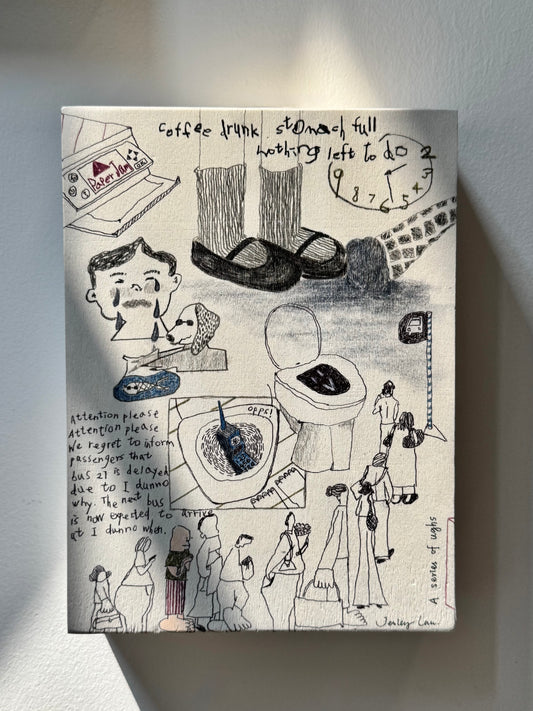 coffee drunk. stomach full
nothing left to do
Paper Jam
OK
2
3
4
5
6
7
8
9
OPPS!
Attention please
Attention please
We regret to inform
passengers that
bus 21 is delayed
due to I dunno
why. The next bus
is now expected to arrive
at I dunno when.
A series of ughs